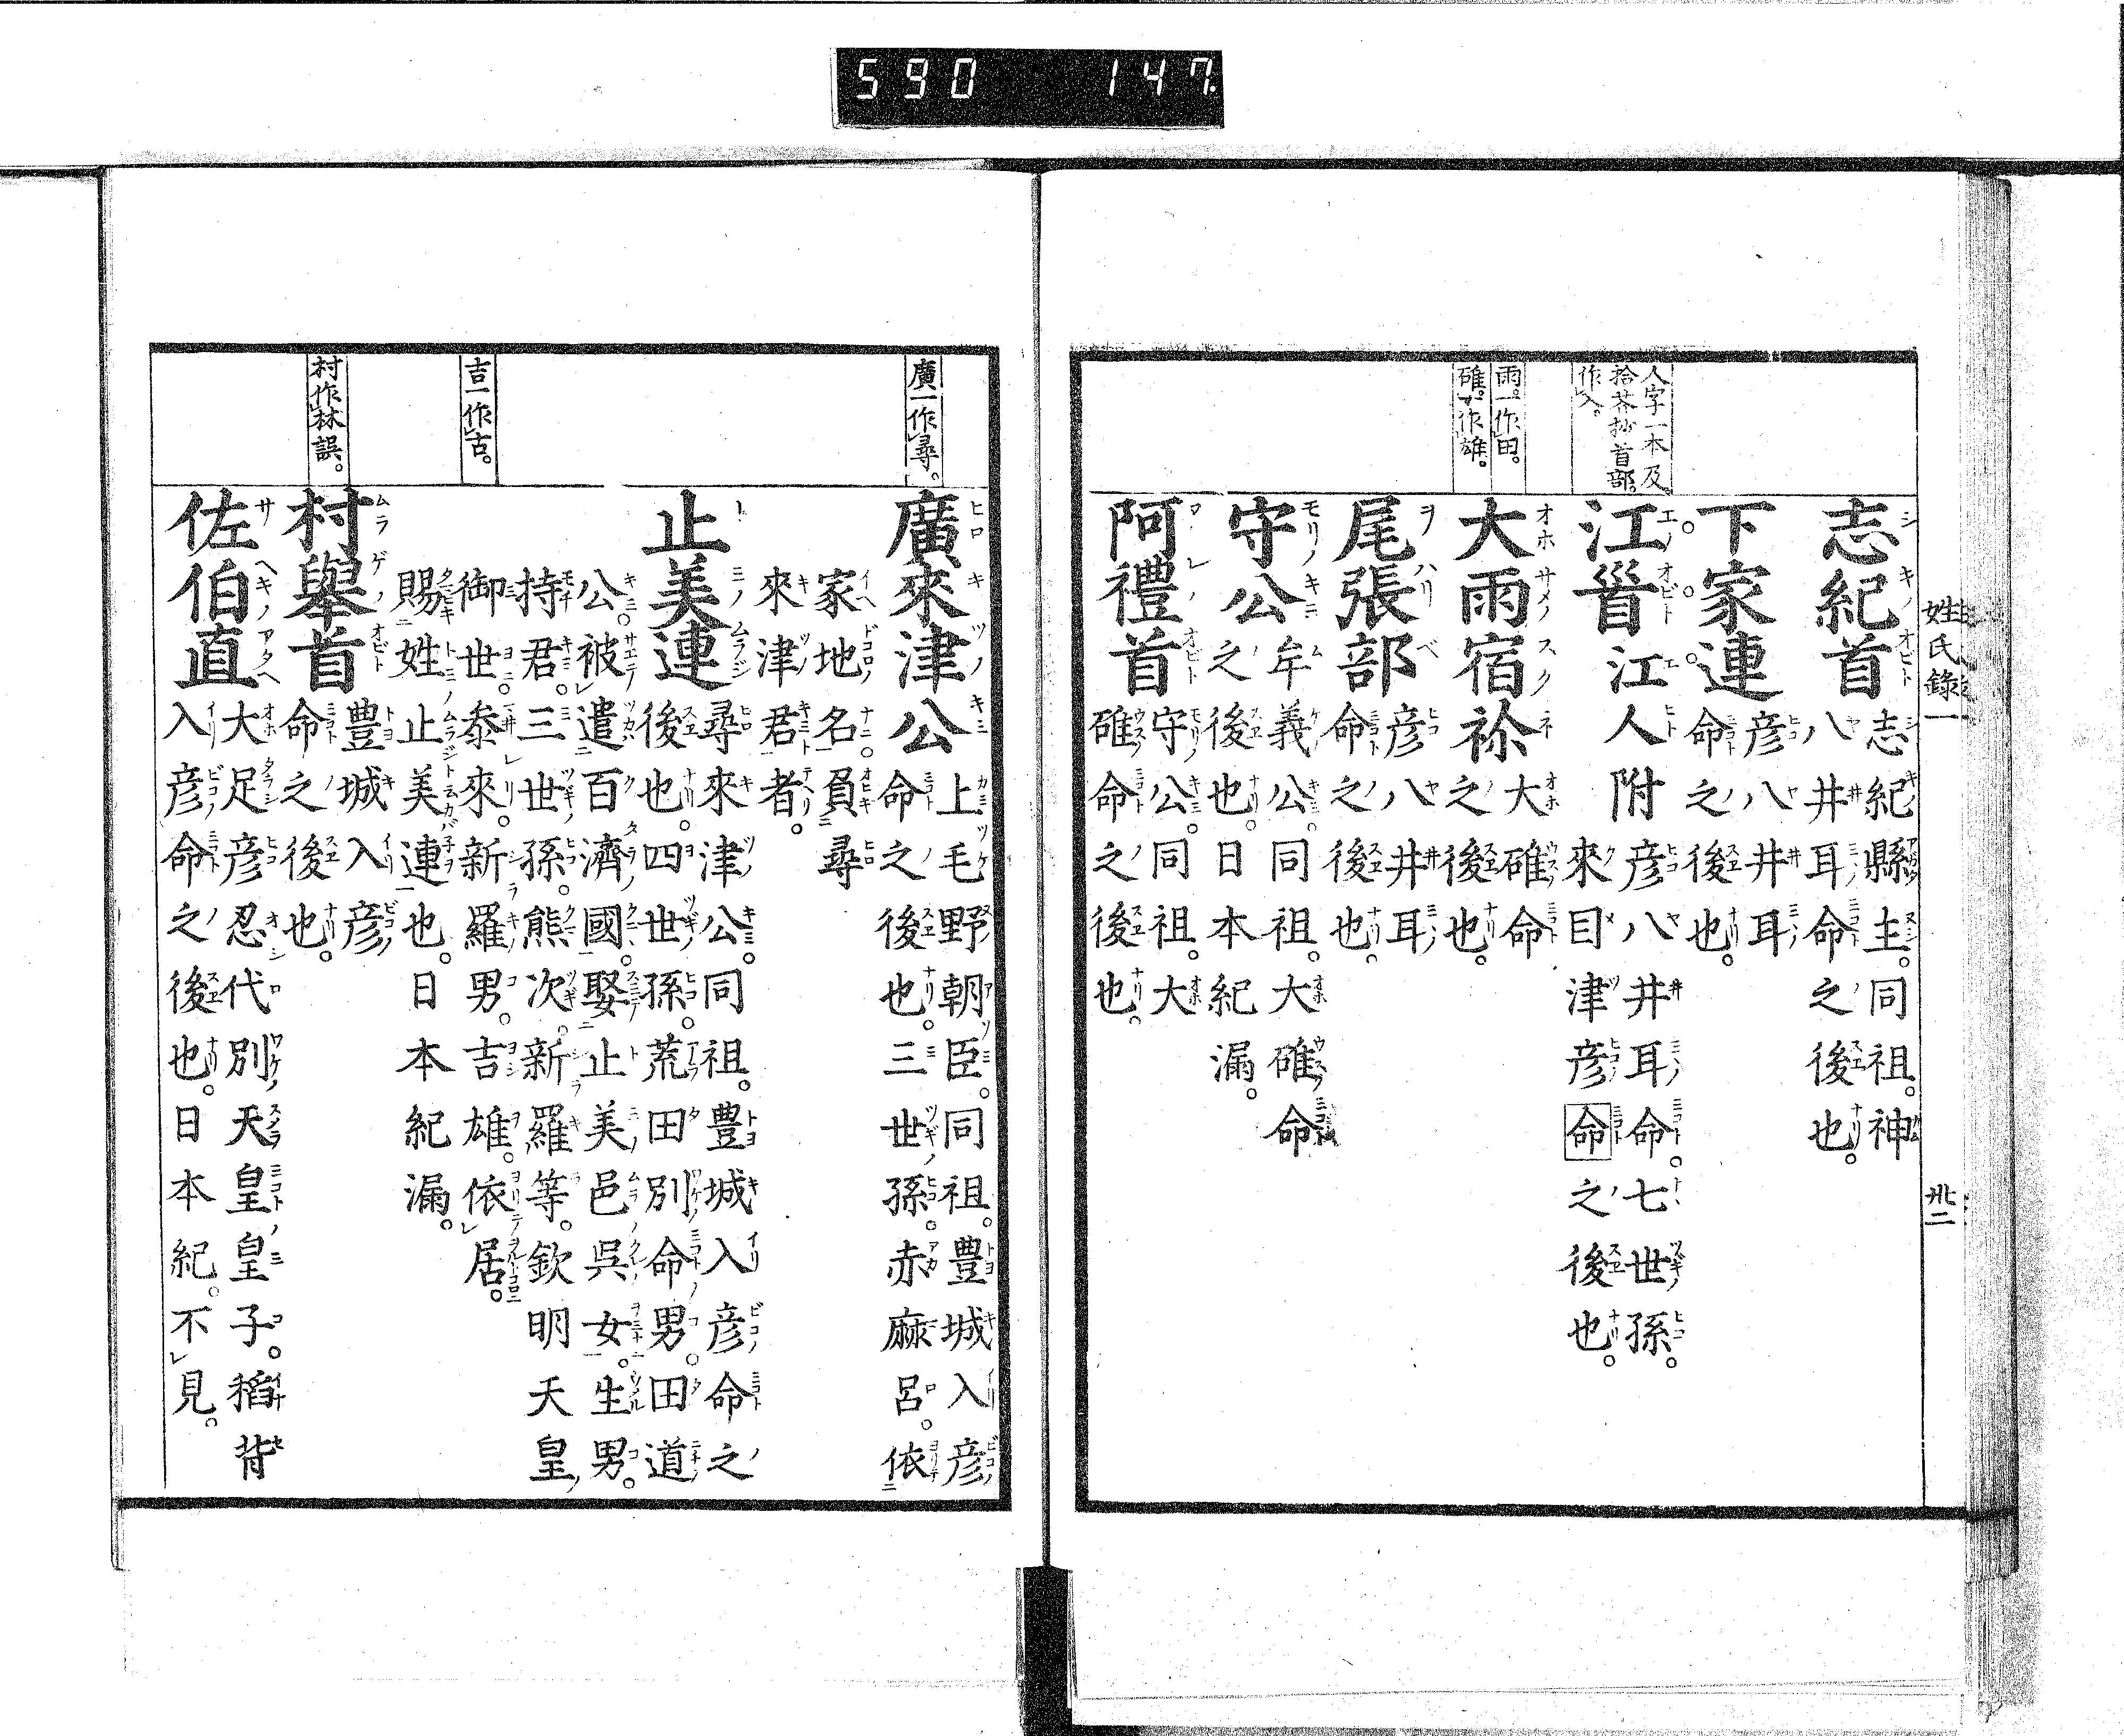 590 147
姓氏錄一
卅二
人字一本及
拾芥抄首部
作入。
雨。一作田。
碓。一作雄。
志紀首
志紀縣主。同祖。神
八井耳命之後也。
下家連
彦八井耳
命之後也。
江首
江人附
彦八井耳命。七世孫。
來目津彦命之後也。
大雨宿祢
大碓命
之後也。
尾張部
彦八井耳
命之後也。
守公
牟義公。同祖。大碓命
之後也。日本紀漏。
阿禮首
守公。同祖。大
碓命之後也。
廣一作尋。
吉一作古。
村作林誤。
廣來津公
上毛野朝臣。同祖。豊城入彦
命之後也。三世孫。赤麻呂。依
家地名。負尋
來津君者。
止美連
尋來津公。同祖。豊城入彦命之
後也。四世孫。荒田別命男。田道
公。被遣百濟國。娶止美邑呉女。生男。
持君。三世孫。熊次。新羅等。欽明天皇
御世。泰來。新羅男。吉雄。依居。
賜姓止美連也。日本紀漏。
村舉首
豊城入彦
命之後也。
佐伯直
大足彦忍代別天皇皇子。稻背
入彦命之後也。日本紀。不見。